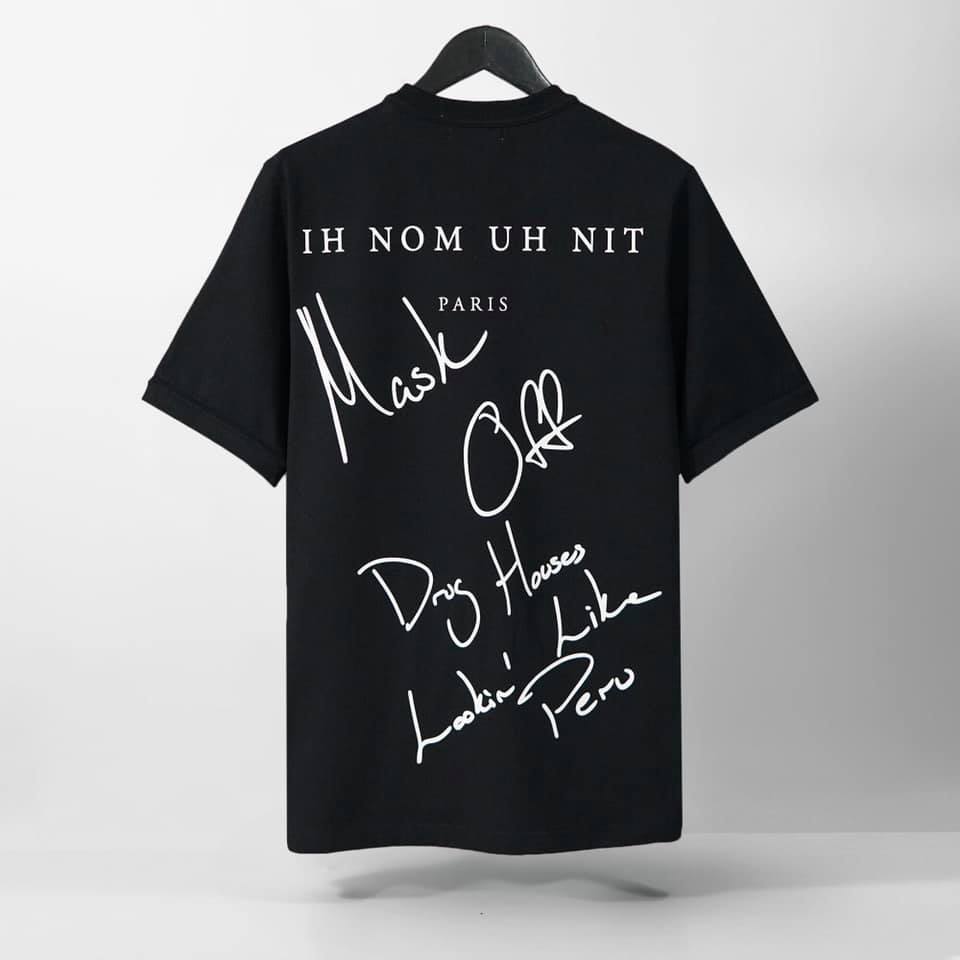 IH NOM UH NIT
PARIS
Mask
Off
Drug Houses
Lookin' Like
Peru